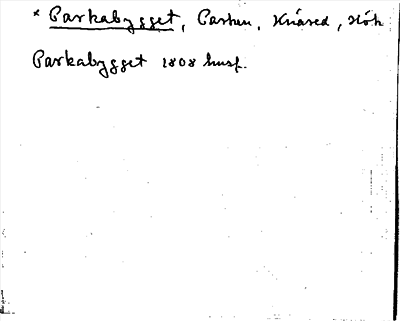 * Parkabygget, Parken, Knäred, Hök
Parkabygget 1808 husf.